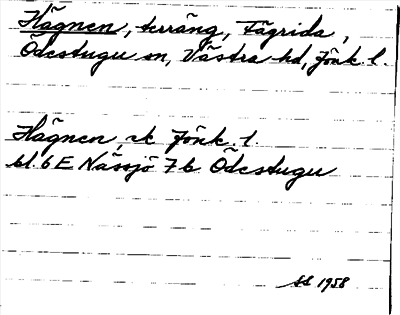 Hägnen, terräng, Fägrida,
Ödestugu sn, Västra hd, Jönk. l.
Hägnen, ek Jönk. l.
bl. 6E Nässjö 7b Ödestugu
1958